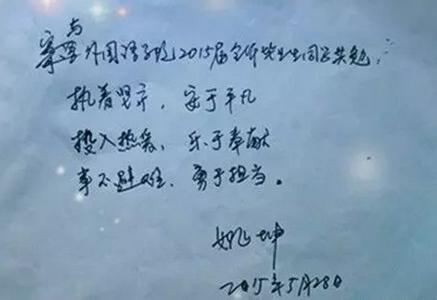 与
外国语学院2015届全体毕业生同学共勉：
执着坚守，安于平凡
投入热爱，乐于奉献
事不避难、勇于担当。
姚坤
2015年5月28日